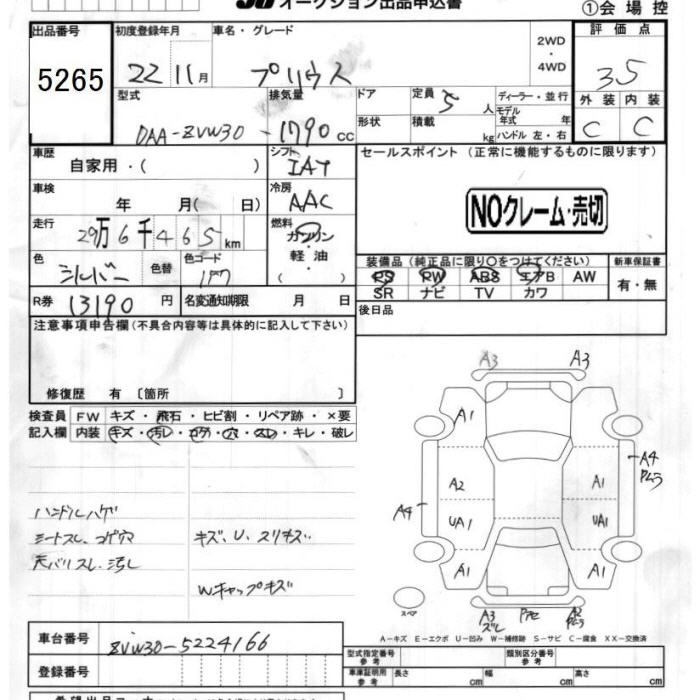 JU オークション出品申込書
①会場控
出品番号 5265
初度登録年月 22 11月
車名・グレード プリウス
2WD・4WD
評価点 3.5
型式 DAA-ZVW30
排気量 1790 cc
ドア
定員 5 人
ディーラー・並行
形状
積載 kg
モデル年式 年
ハンドル 左・右
外装 C
内装 C
車歴 自家用・( )
シフト IAT
セールスポイント (正常に機能するものに限ります)
NOクレーム・売切
車検 年 月( 日)
冷房 AAC
走行 29万6千465km
燃料 ガソリン・軽油・( )
色 シルバー 色替
色コード 1F7
装備品(純正品に限り○をつけてください)
PS PW ABS エアB AW
SR ナビ TV カワ
新車保証書 有・無
R券 13190円
名変通知期限 月 日
後日品
注意事項申告欄(不具合内容等は具体的に記入して下さい)
修復歴 有〔箇所 〕
検査員記入欄
FW キズ・飛石・ヒビ割・リペア跡・×要
内装 キズ・汚レ・コゲ・穴・スレ・キレ・破レ
ハンドルハゲ
シートスレ、コゲ穴
天バリスレ、汚レ
キズ、U、スリキズ
Wキャップキズ
A3 A3
A1
A4
A2 A1
A4
UA1 UA1
A1 A1
スペア
A3 ズレ
A2
A-キズ E-エクボ U-凹み W-補修跡 S-サビ C-腐食 XX-交換済
車台番号 ZVW30-5224166
登録番号
型式指定番号 参考
類別区分番号 参考
車庫証明用 参考 長さ cm 幅 cm 高さ cm